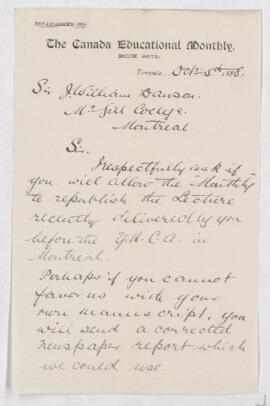 ESTABLISHED 1879.
The Canada Educational Monthly.
BOX
Toronto Oct. 5th 1888.
Sir J William Dawson.
McGill College
Montreal
Sir.
I respectfully ask if
you will allow the Monthly
to republish the Lecture
recently delivered by you
before the Y.M.C.A. in
Montreal.
Perhaps if you cannot
favor us with your
own manuscript, you
will send a corrected
newspaper report which
we could use.